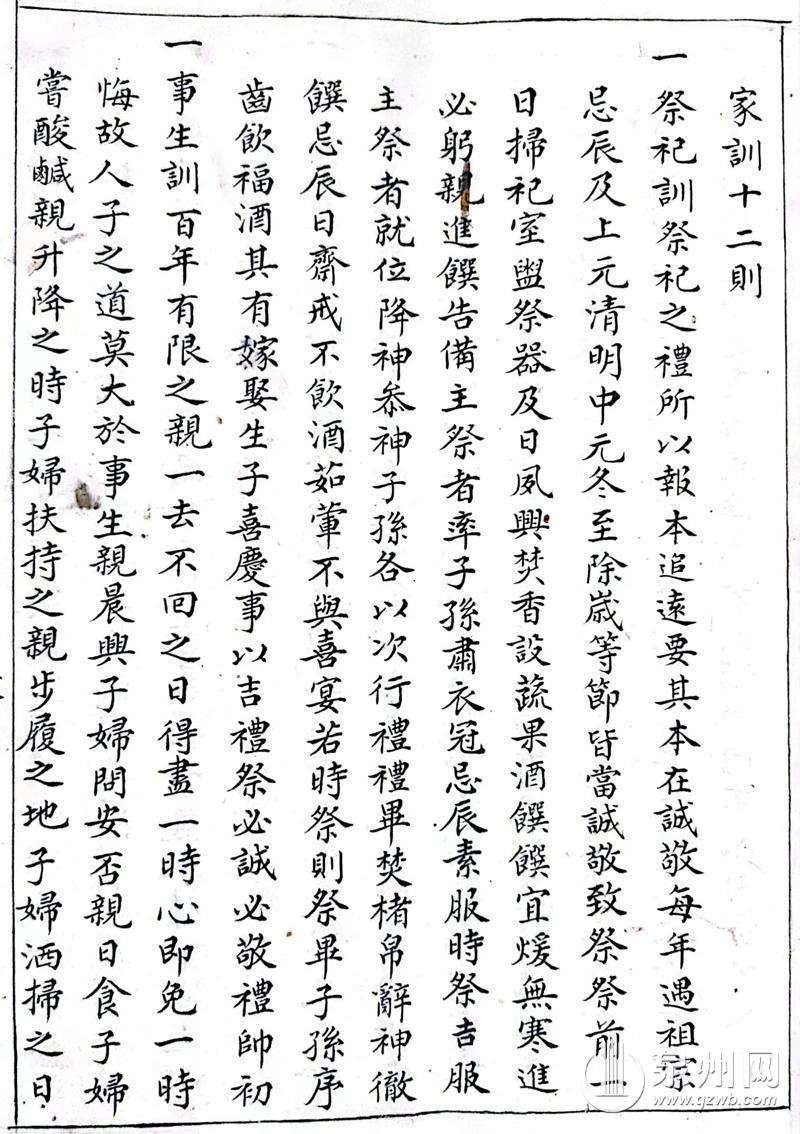 家訓十二則
一祭祀訓祭祀之禮所以報本追遠要其本在誠敬每年遇祖宗
忌辰及上元清明中元冬至除歲等節皆當誠敬致祭祭前一
日掃祀室盥祭器及日夙興焚香設蔬果酒饌饌宜煖無寒進
必躬親進饌告備主祭者率子孫肅衣冠忌辰素服時祭吉服
主祭者就位降神叅神子孫各以次行禮禮畢焚楮帛辭神徹
饌忌辰日齋戒不飲酒茹葷不與喜宴若時祭則祭畢子孫序
齒飲福酒其有嫁娶生子喜慶事以吉禮祭必誠必敬禮帥初
一事生訓百年有限之親一去不回之日得盡一時心即免一時
悔故人子之道莫大於事生親晨興子婦問安否親日食子婦
嘗酸鹹親升降之時子婦扶持之親步履之地子婦洒掃之日
泉州网
www.qzwb.com